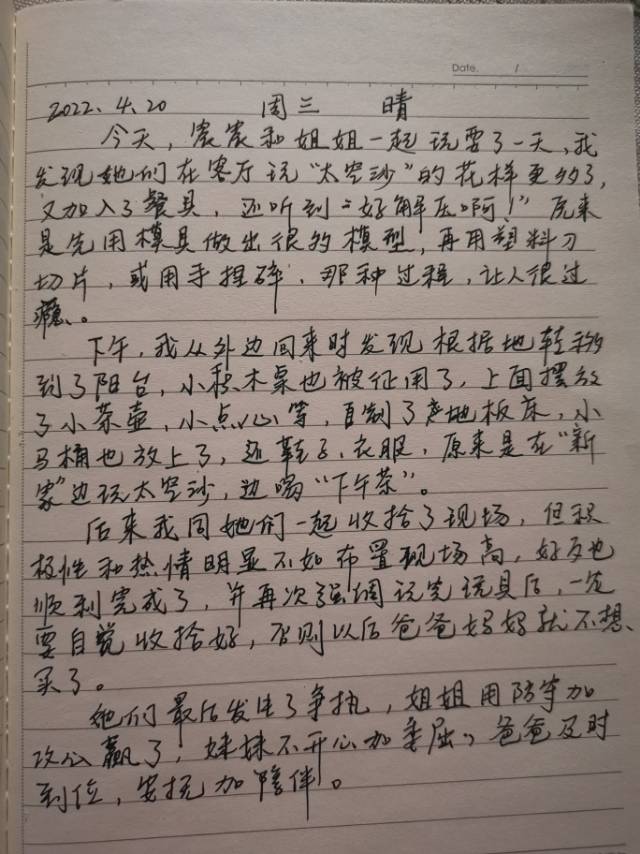 Date.        /
2022.4.20        周三        晴
今天，宸宸和姐姐一起玩耍了一天，我
发现她们在客厅玩“太空沙”的花样更多了，
又加入了餐具，还听到“好解压啊！”原来
是先用模具做出很多模型，再用塑料刀
切片，或用手捏碎，那种过程，让人很过
瘾。
下午，我从外边回来时发现根据地转移
到了阳台，小积木桌也被征用了，上面摆放
了小茶壶，小点心等，自制了地板床，小
马桶也放上了，还鞋子、衣服，原来是在“新
家”边玩太空沙，边喝“下午茶”。
后来我同她们一起收拾了现场，但积
极性和热情明显不如布置现场高，好歹也
顺利完成了，并再次强调玩完玩具后，一定
要自觉收拾好，否则以后爸爸妈妈就不想
买了。
她们最后发生了争执，姐姐用防守加
攻心赢了，妹妹不开心加委屈，爸爸及时
到位，安抚加陪伴。